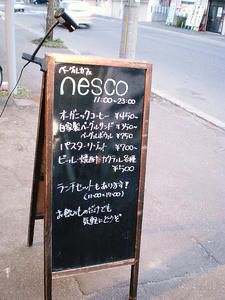 ベーグルカフェ
nesco
11:00~23:00
オーガニックコーヒー ¥450~
自家製ベーグルサンド ¥350~
ベーグルボウル ¥750
パスタ・リゾット ¥700~
ビール・焼酎・カクテル各種
¥500
ランチセットもあります!
(11:00~17:00)
お飲みものだけでも
気軽にどうぞ